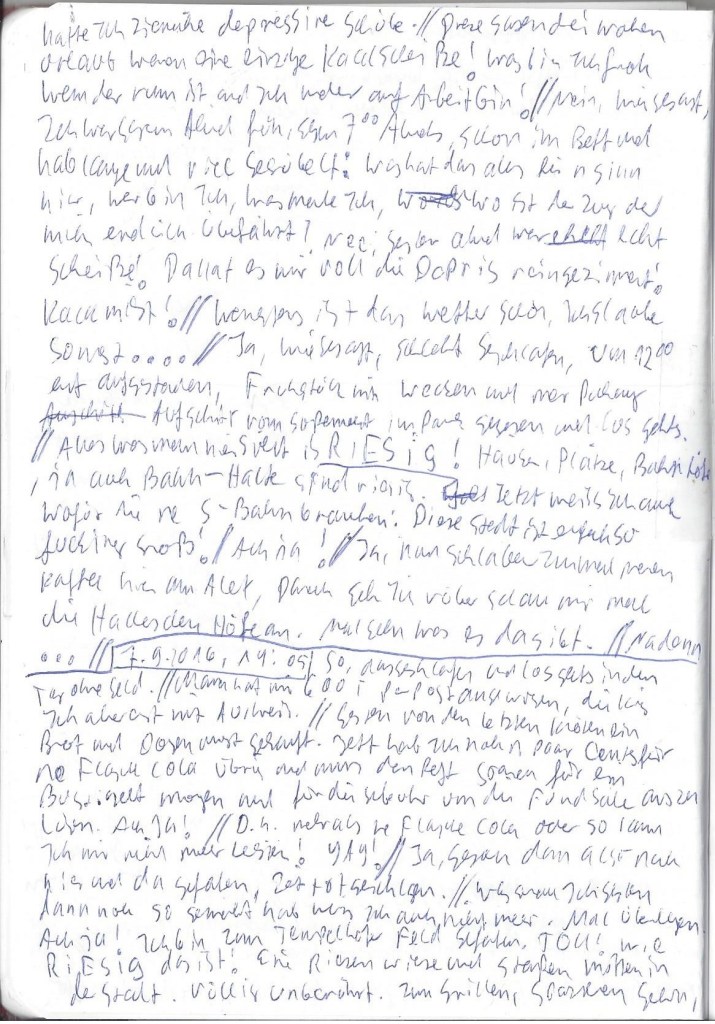 hatte Ich ziemliche depressive Schübe. // Diese zwei Wochen
Urlaub waren eine einzige Kackscheiße! Was bin Ich froh
wenn der rum ist und Ich wieder auf Arbeit bin! // Nein, wie gesagt,
Ich war gestern Abend früh, gegen 7⁰⁰ Abends, schon im Bett und
hab lange und viel gegrübelt: Was hat das alles für n Sinn
hier, wer bin Ich, was mache Ich, wo ist der Zug der
mich endlich überfährt? Nee, gestern Abend war echt
Scheiße! Da hat es mir voll die Depris reingezimmert!
Kackmist! // Wenigstens ist das Wetter schön, Ich glaube
sonst .... // Ja, wie gesagt, schlecht geschlafen, um 12⁰⁰
erst aufgestanden, Frühstück mit Wecken und ner Packung
Aufschnitt vom Supermarkt im Park gegessen und los gehts.
// Alles was man hier sieht is RIESIG! Häuser, Plätze, Bahnhöfe
, ja auch Bahn-Halte sind riesig. Jetzt weiß Ich auch
wofür die ne S-Bahn brauchen: Diese Stadt ist einfach so
fucking groß! // Ach ja! // Ja, nun schlabber Ich mal meinen
Kaffee hier am Alex, danach geh Ich rüber schau mir mal
die Hackeschen Höfe an. Mal sehn was es da gibt. // Na dann
... // 7.9.2016, 14:05 / So, ausgeschlafen und los gehts in den
Tag ohne Geld. // Mama hat mir 600 € per Post angewiesen, die krieg
Ich aber erst mit Ausweis. // Gestern von den letzten Kröten ein
Brot und Dosenwurst gekauft. Jetzt hab Ich noch n paar Cents für
ne Flasche Cola übrig und muss den Rest sparen für ein
Busticket morgen und für die Gebühr um den Fundsache auszu
lösen. Ach Ja! // D.h. mehr als ne Flasche Cola oder so kann
Ich mir nicht mehr leisten! YAY! // Ja, gestern dann also nach
hier und da gefahren, Zeit totgeschlagen. // Was genau Ich gestern
dann noch so gemacht hab weiß Ich auch nicht mehr. Mal überlegen
Ach ja! Ich bin zum Tempelhofer Feld gefahren. TOLL! wie
RIESIG das ist! Eine Riesen Wiese und Straßen mitten in
der Stadt. Völlig unberührt. Zum Grillen, Spazieren Gehen,